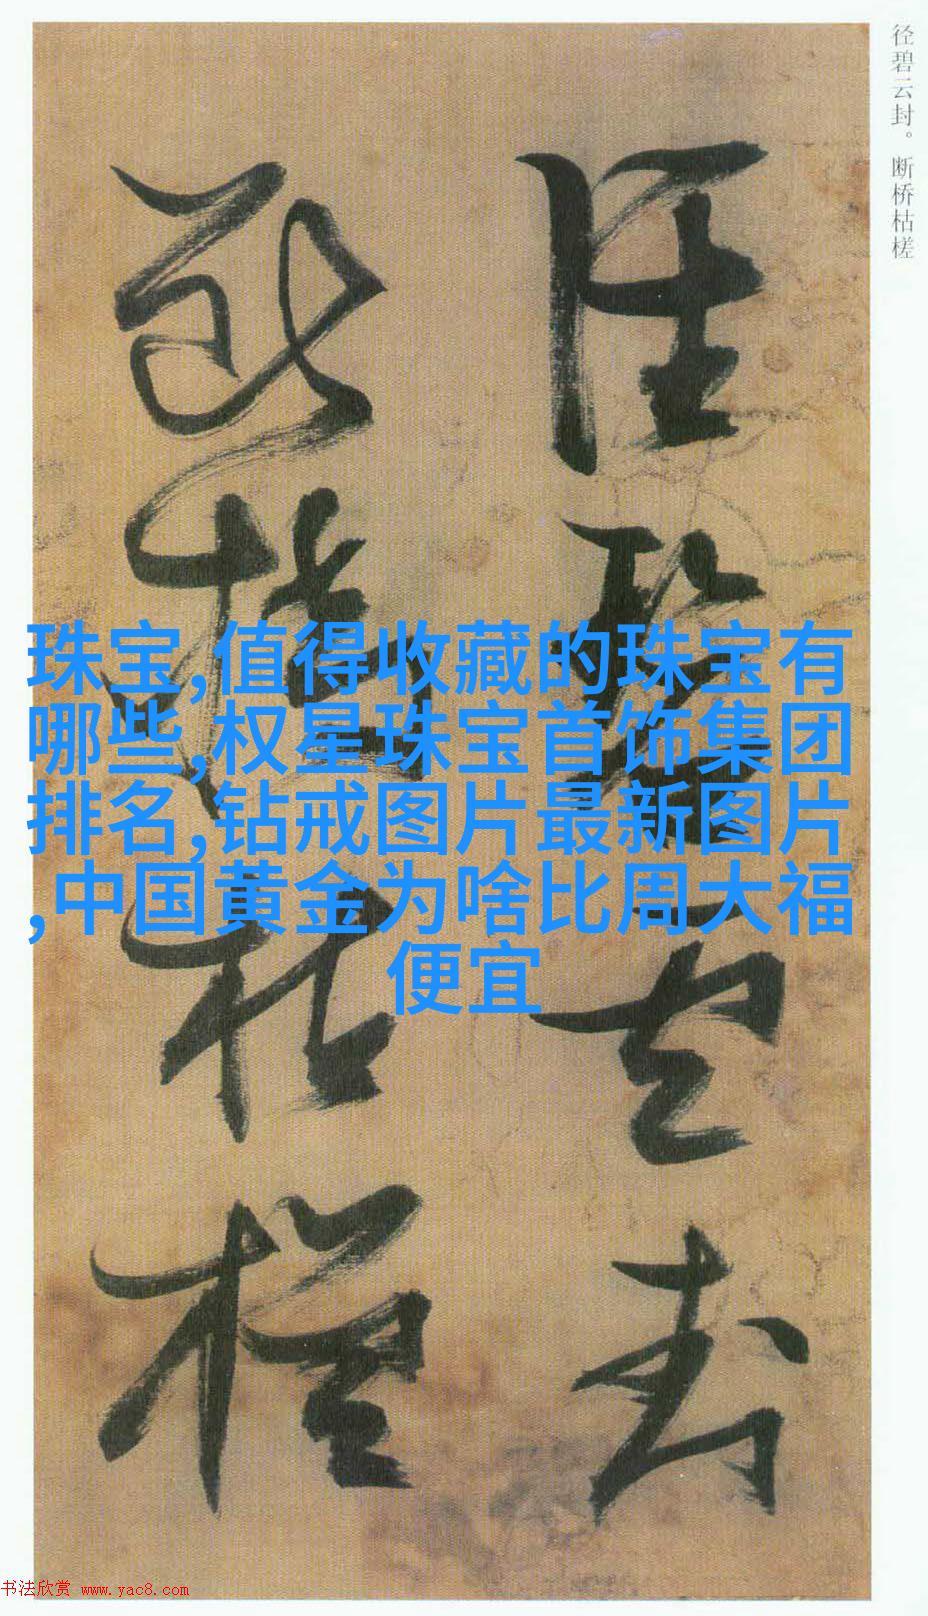 径碧云封。断桥枯槎
径碧云封
断桥枯槎
珠宝,值得收藏的珠宝有
哪些,权星珠宝首饰集团
排名,钻戒图片最新图片
,中国黄金为啥比周大福
便宜
书法欣赏 www.yac8.com